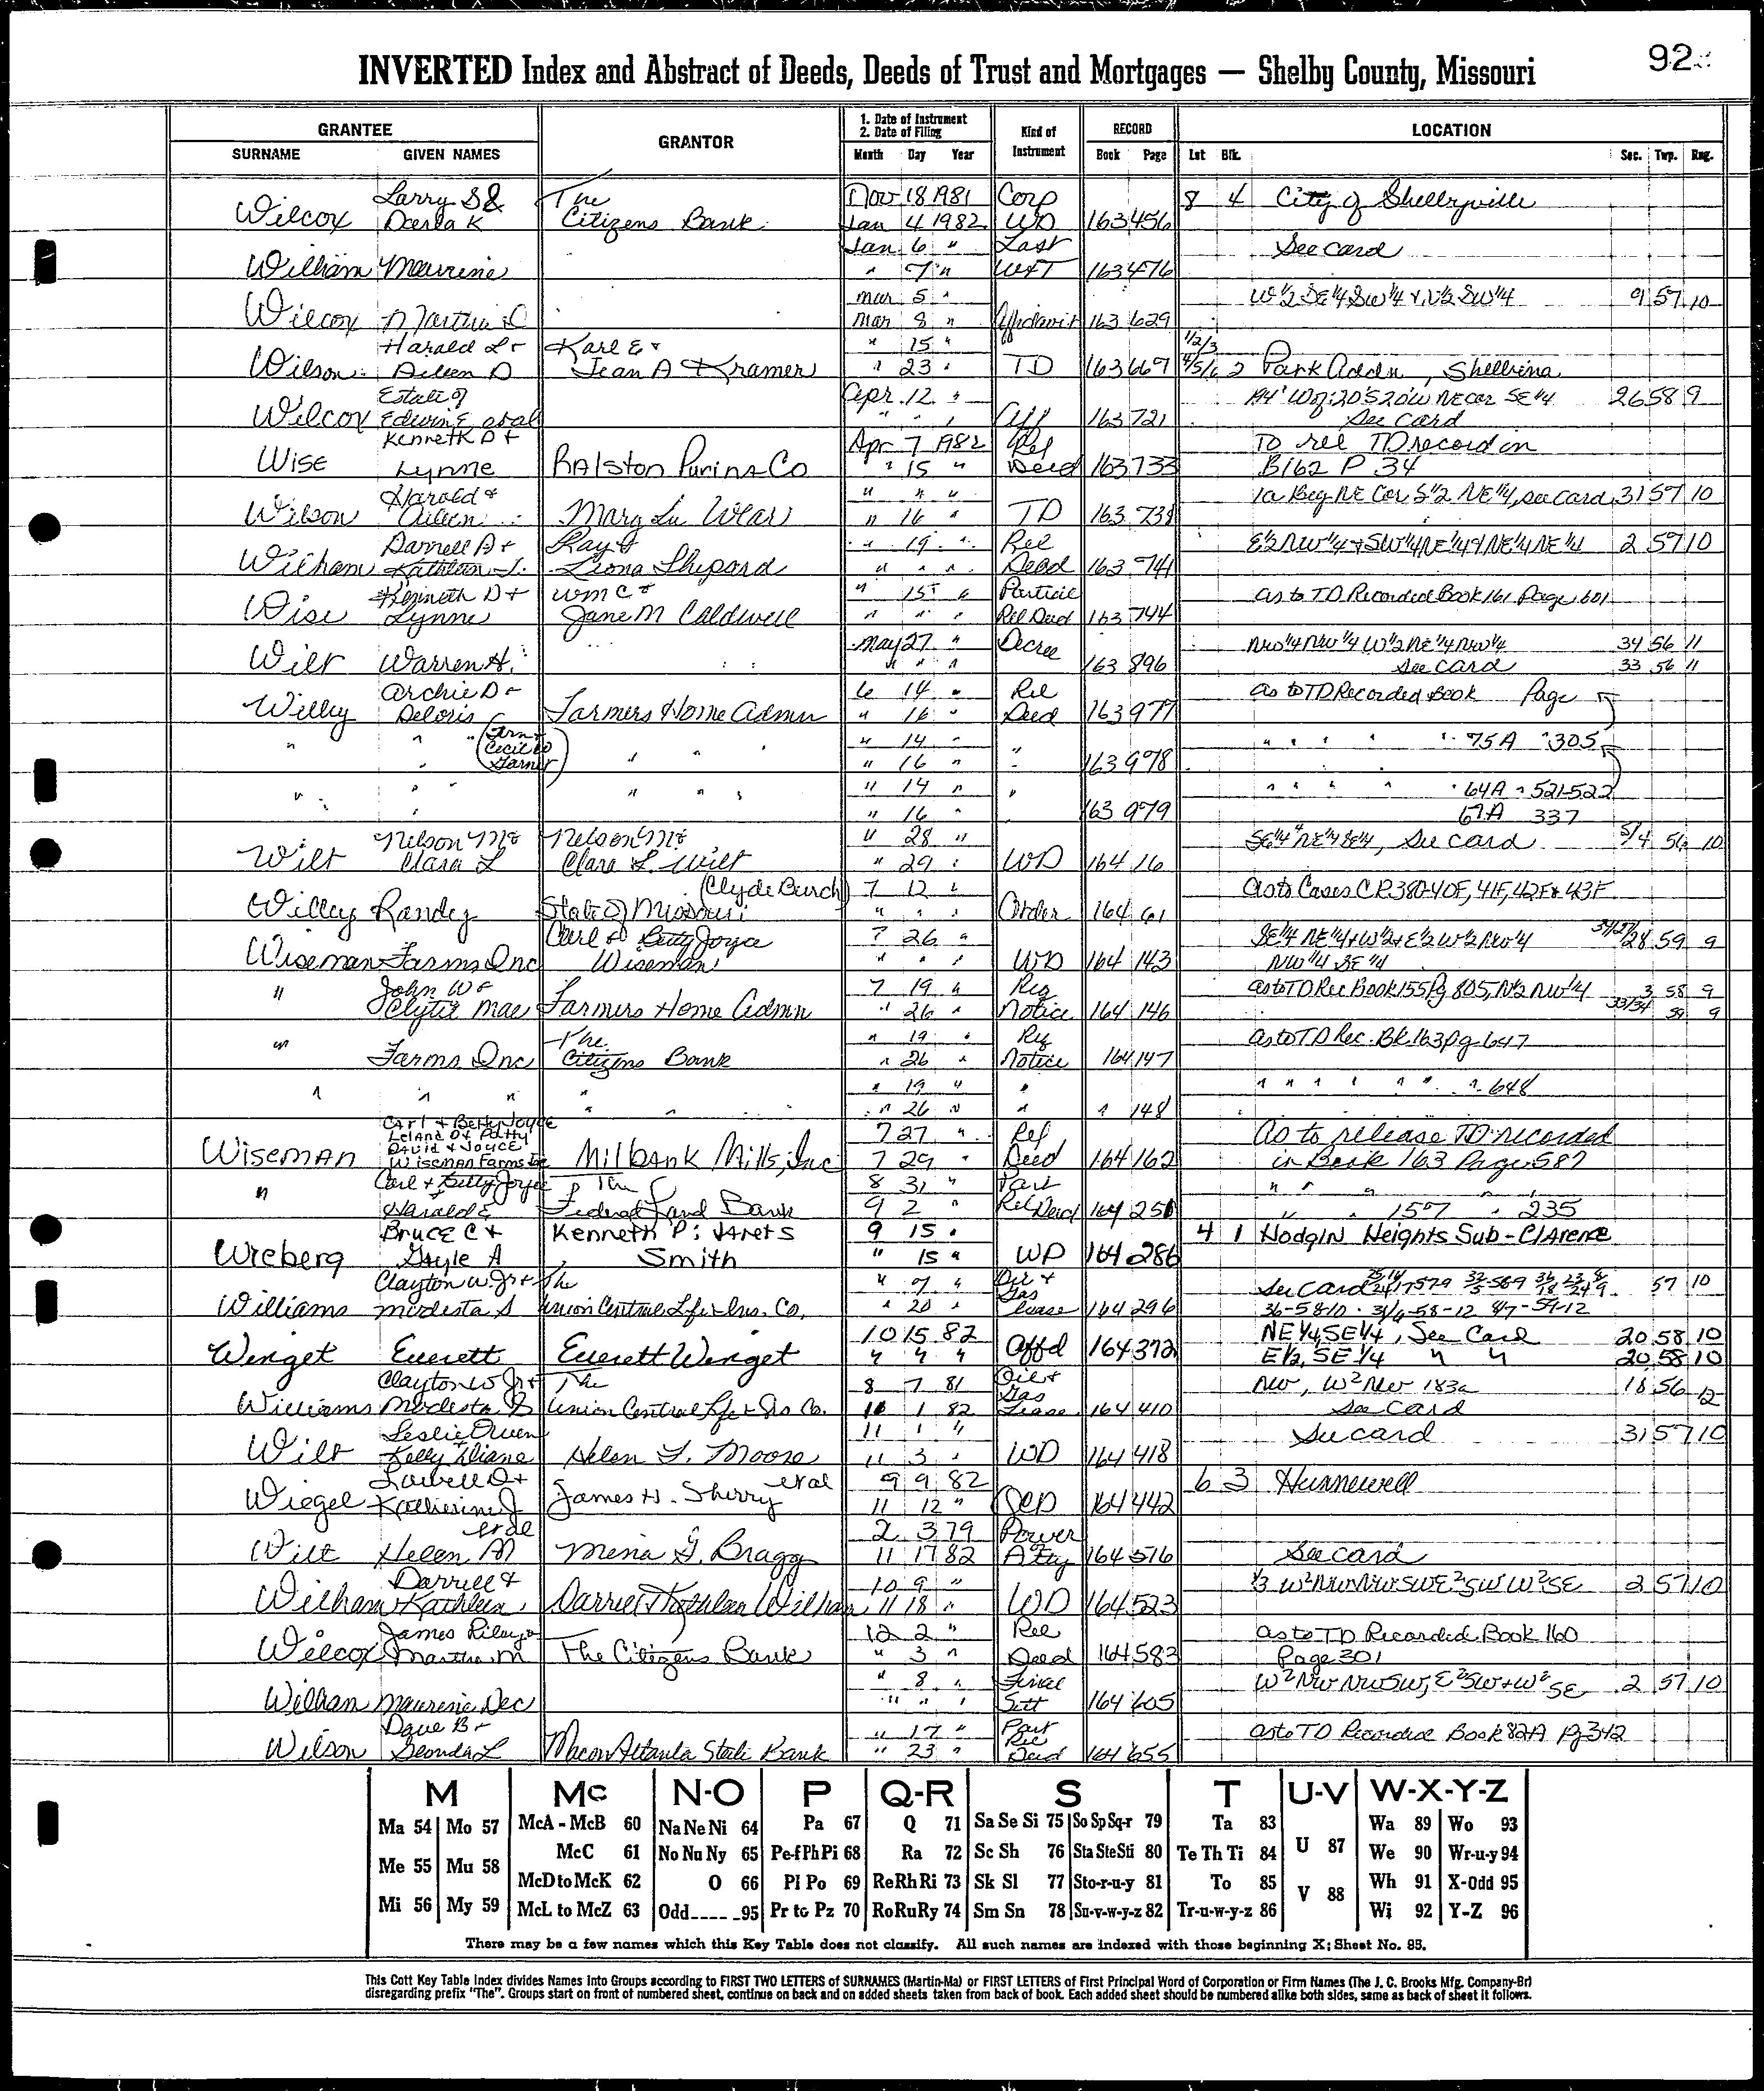 92
INVERTED Index and Abstract of Deeds, Deeds of Trust and Mortgages — Shelby County, Missouri
GRANTEE GRANTOR 1. Date of Instrument 2. Date of Filing Kind of Instrument RECORD LOCATION
SURNAME GIVEN NAMES Month Day Year Book Page Lot Blk. Sec. Twp. Rng.
Larry S & The Nov 18 1981 Corp 8 4 City of Shelbyville
Wilcox Deela K Citizens Bank Jan 4 1982 WD 163 456
Jan 6 " Last See card
William Maurine " 7 " W&T 163 476
Mar 5 " W 1/2 SE 1/4 SW 1/4 + N 1/2 SW 1/4 9 57 10
Wilcox Martha Mar 8 " Affidavit 163 629
Harald L + Karl E + " 15 " 1/2/3
Wilson Aileen D Jean A Kramer " 23 " TD 163 667 4/5/6 2 Park Addn, Shelbina
Estate of Apr 12 " 194' W of 20'S 20'W NE cor SE 1/4 26 58 9
Wilcox Edwin E etal " " " Aff 163 721 See card
Kenneth D + Apr 7 1982 Rel To rel TD record in
Wise Lynne Ralston Purina Co " 15 " Deed 163 733 B162 P. 34
Harold & " " " 1a Beg NE Cor S 1/2 NE 1/4, see card 31 57 10
Wilson Aileen Mary Lu Wear " 16 " TD 163 738
Darrell D + Ray & " 19 " Rel E 1/2 NW 1/4 + SW 1/4 NE 1/4 + NE 1/4 NE 1/4 2 57 10
Wilham Kathleen J. Liona Shepard " " " Deed 163 741
Kenneth D + Wm C & " 15 " Partial as to TD Recorded Book 161 Page 601
Wise Lynne Jane M Caldwell " " " Rel Deed 163 744
May 27 " Decree NW 1/4 NW 1/4 W 1/2 NE 1/4 NW 1/4 34 56 11
Wilt Warren H. " " " 163 896 See card 33 56 11
Archie D + 6 14 " Rel as to TD Recorded Book Page
Willey Deloris Farmers Home Admn " 16 " Deed 163 977
" " " (Fern + " 14 " " " " " " " 75A " 305
" Cecil D Garner) " " " 16 " " 163 978
" " " " " " " 14 " " " " " " " 64A " 521-522
" " 16 " 163 979 67A 337
Nelson M & Nelson M & " 28 " SE 1/4 NE 1/4 SE 1/4, See card 5/4 56 10
Wilt Clara L Clara L. Wilt " 29 " WD 164 16
(Clyde Burch) 7 12 " as to Cases CR380-40F, 41F, 42F & 43F
Willey Randy State of Missouri " " " Order 164 61
Carl & Betty Joyce 7 26 " SE 1/4 NE 1/4 + W 1/2 + E 1/2 W 1/2 NW 1/4 34/27/28 59 9
Wiseman Farms Inc Wiseman " " " WD 164 143 NW 1/4 SE 1/4
John W & 7 19 " Req as to TD Rec Book 155 Pg 805, N 1/2 NW 1/4 3 58 9
" Clytie Mae Farmers Home Admn " 26 " Notice 164 146 33/34 59 9
" The " 19 " Req as to TD Rec. Bk 163 pg 647
Farms Inc Citizens Bank " 26 " Notice 164 147
" " " " " 19 " " " " " " " " " 648
" " " 26 " " " 148
Carl + Betty Joyce
Leland D + Patty 7 27 " Rel As to release TD recorded
David & Joyce
Wiseman Wiseman Farms Inc Milbank Mills, Inc 7 29 " Deed 164 162 in Book 163 Page 587
" Carl + Betty Joyce The 8 31 " Part " " " " "
Harald E Federal Land Bank 9 2 " Rel Deed 164 250 " " 157 " 235
Bruce C + Kenneth P; Janet S 9 15 " 4 1 Hodgin Heights Sub - Clarence
Wieberg Gayle A Smith " 15 " WD 164 286
Clayton W. Jr + The " 7 " Oil + Gas See card 57 10
Williams Modesta S Union Central Life Ins. Co. " 20 " Lease 164 296 36-58-10
10 15 82 NE 1/4, SE 1/4, See Card 20 58 10
Winget Everett Everett Winget " " " Affd 164 372 E 1/2, SE 1/4 " " 20 58 10
Clayton W Jr + The 8 7 81 Oil + Gas NW, W 2 NW 183a 18 56 12
Williams Modesta S Union Central Life & Ins Co. 10 1 82 Lease 164 410 See card
Leslie Owen 11 1 " See card 31 57 10
Wilt Kelly Diane Helen F. Moore 11 3 " WD 164 418
Lowell D + etal 9 9 82 6 3 Hunnewell
Wiegel Katherine J James H. Sherry 11 12 " QCD 164 442
etal 2 3 79 Power
Wilt Helen M Mena G. Bragg 11 17 82 Atty 164 516 See card
Darrell & 10 9 " 1/3 W 2 NW NW SW E 2 SW W 2 SE 2 57 10
Wilham Kathleen Darrell + Kathleen Wilham 11 18 " WD 164 523
James Riley & 12 2 " Rel as to TD Recorded Book 160
Wilcox Martha M The Citizens Bank " 3 " Deed 164 583 Page 301
" 8 " Final W 2 NW NW SW, E 2 SW + W 2 SE 2 57 10
Wilham Maurine Dec " " " Sett 164 605
Dave B + " 17 " Part Rel as to TD Recorded Book 82A Pg 342
Wilson Glenda L Macon Atlanta State Bank " 23 " Deed 164 655
M Mc N-O P Q-R S T U-V W-X-Y-Z
Ma 54 Mo 57 McA - McB 60 Na Ne Ni 64 Pa 67 Q 71 Sa Se Si 75 So Sp Sq-r 79 Ta 83 U 87 Wa 89 Wo 93
McC 61 No Nu Ny 65 Pe-f Ph Pi 68 Ra 72 Sc Sh 76 Sta Ste Sti 80 Te Th Ti 84 We 90 Wr-u-y 94
Me 55 Mu 58 McD to McK 62 O 66 Pl Po 69 Re Rh Ri 73 Sk Sl 77 Sto-r-u-y 81 To 85 V 88 Wh 91 X-Odd 95
Mi 56 My 59 McL to McZ 63 Odd 95 Pr to Pz 70 Ro Ru Ry 74 Sm Sn 78 Su-v-w-y-z 82 Tr-u-w-y-z 86 Wi 92 Y-Z 96
There may be a few names which this Key Table does not classify. All such names are indexed with those beginning X; Sheet No. 95.
This Cott Key Table Index divides Names into Groups according to FIRST TWO LETTERS of SURNAMES (Martin-Ma) or FIRST LETTERS of First Principal Word of Corporation or Firm Names (The J. C. Brooks Mfg. Company-Br)
disregarding prefix "The". Groups start on front of numbered sheet, continue on back and on added sheets taken from back of book. Each added sheet should be numbered alike both sides, same as back of sheet it follows.